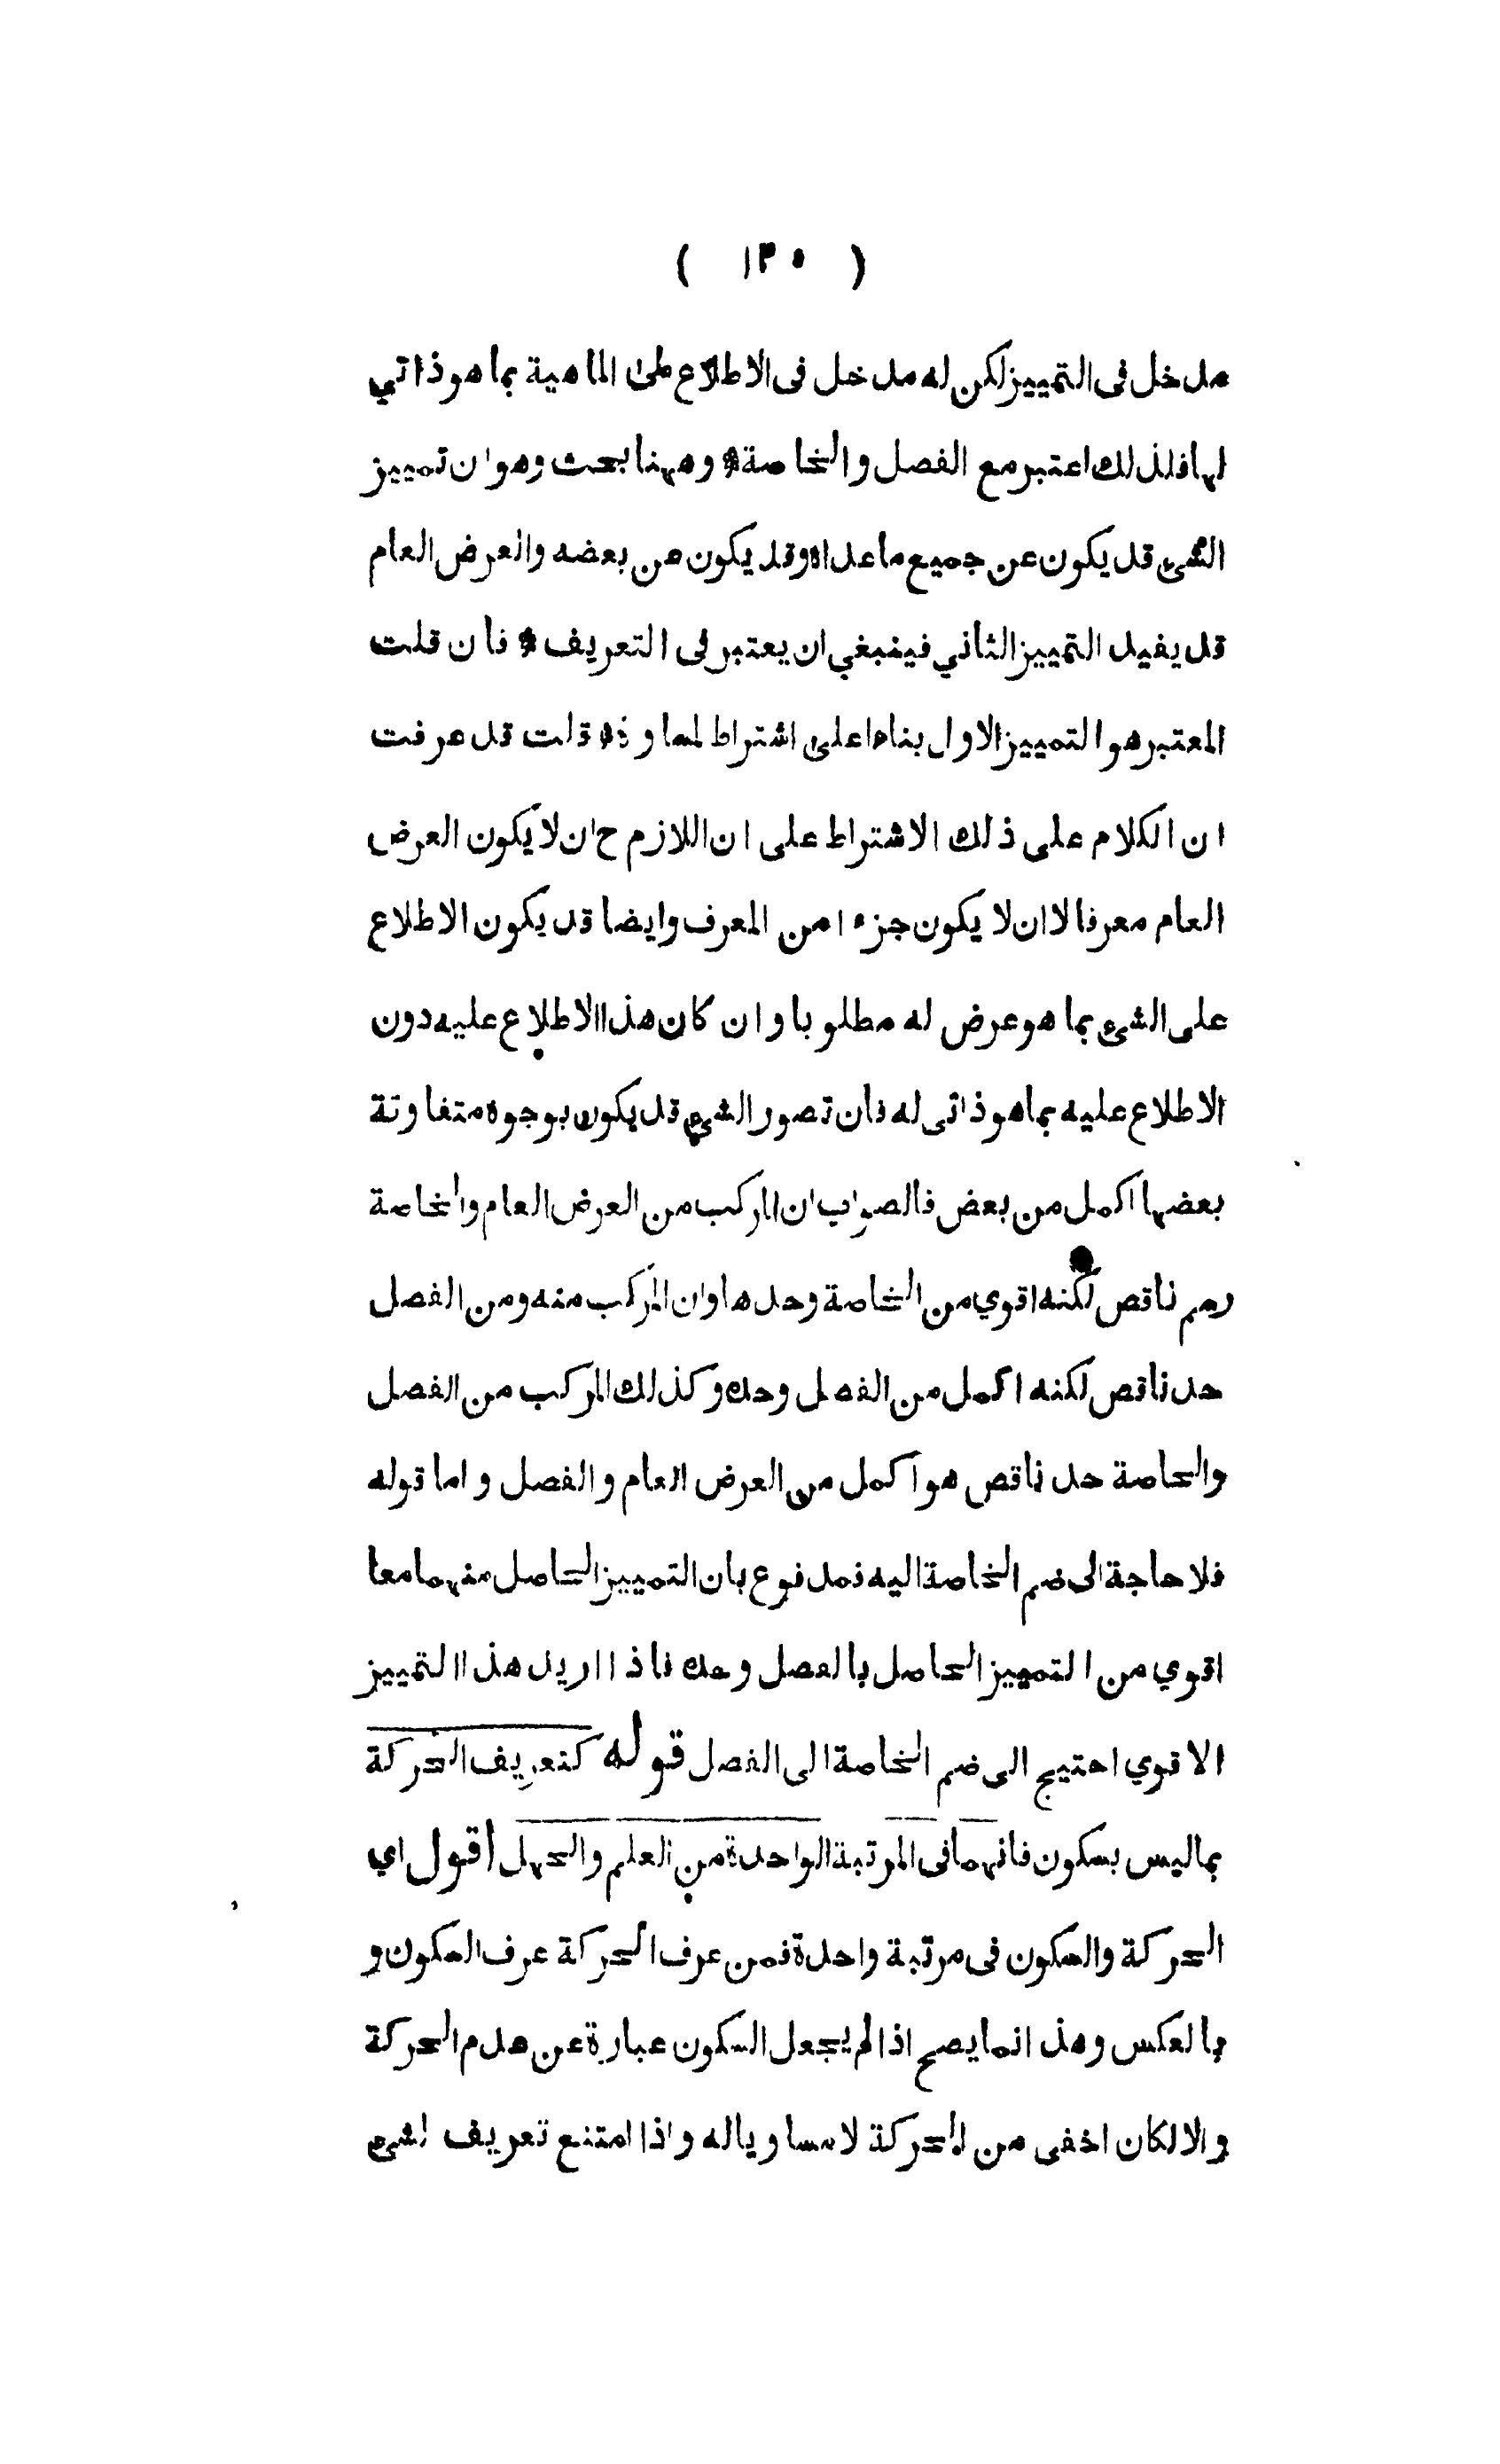 ( ١٣٠ )
مدخل فى التمييز لكن له مدخل فى الاطلاع على الماهية بما هو ذاتي
لها فلذلك اعتبر مع الفصل والخاصة * وههنا بحث وهو ان تمييز
الشئ قد يكون عن جميع ماعداه وقد يكون عن بعضه والعرض العام
قد يفيد التمييز الثاني فينبغي ان يعتبر فى التعريف * فان قلت
المعتبر هو التمييز الاول بناءا على اشتراط المساوة * قلت قد عرفت
ان الكلام على ذلك الاشتراط على ان اللازم ح ان لا يكون العرض
العام معرفا لا ان لا يكون جزءا من المعرف وايضا قد يكون الاطلاع
على الشئ بما هو عرض له مطلوبا وان كان هذا الاطلاع عليه دون
الاطلاع عليه بما هو ذاتى له فان تصور الشئ قد يكون بوجوه متفاوتة
بعضها اكمل من بعض فالصواب ان المركب من العرض العام والخاصة
رسم ناقص لكنه اقوي من الخاصة وحدها وان المركب منه ومن الفصل
حد ناقص لكنه اكمل من الفصل وحده وكذلك المركب من الفصل
والخاصة حد ناقص هو اكمل من العرض العام والفصل واما قوله
فلا حاجة الى ضم الخاصة اليه فمدفوع بان التمييز الحاصل منهما معا
اقوي من التمييز الحاصل بالفصل وحده فاذا اريد هذا التمييز
الاقوي احتيج الى ضم الخاصة الى الفصل قوله كتعريف الحركة
بما ليس بسكون فانهما فى المرتبة الواحدة من العلم والجهل اقول اي
الحركة والسكون فى مرتبة واحدة فمن عرف الحركة عرف السكون و
بالعكس وهذا انما يصح اذا لم يجعل السكون عبارة عن عدم الحركة
والا لكان اخفى من الحركة لا مساويا له واذا امتنع تعريف الشئ